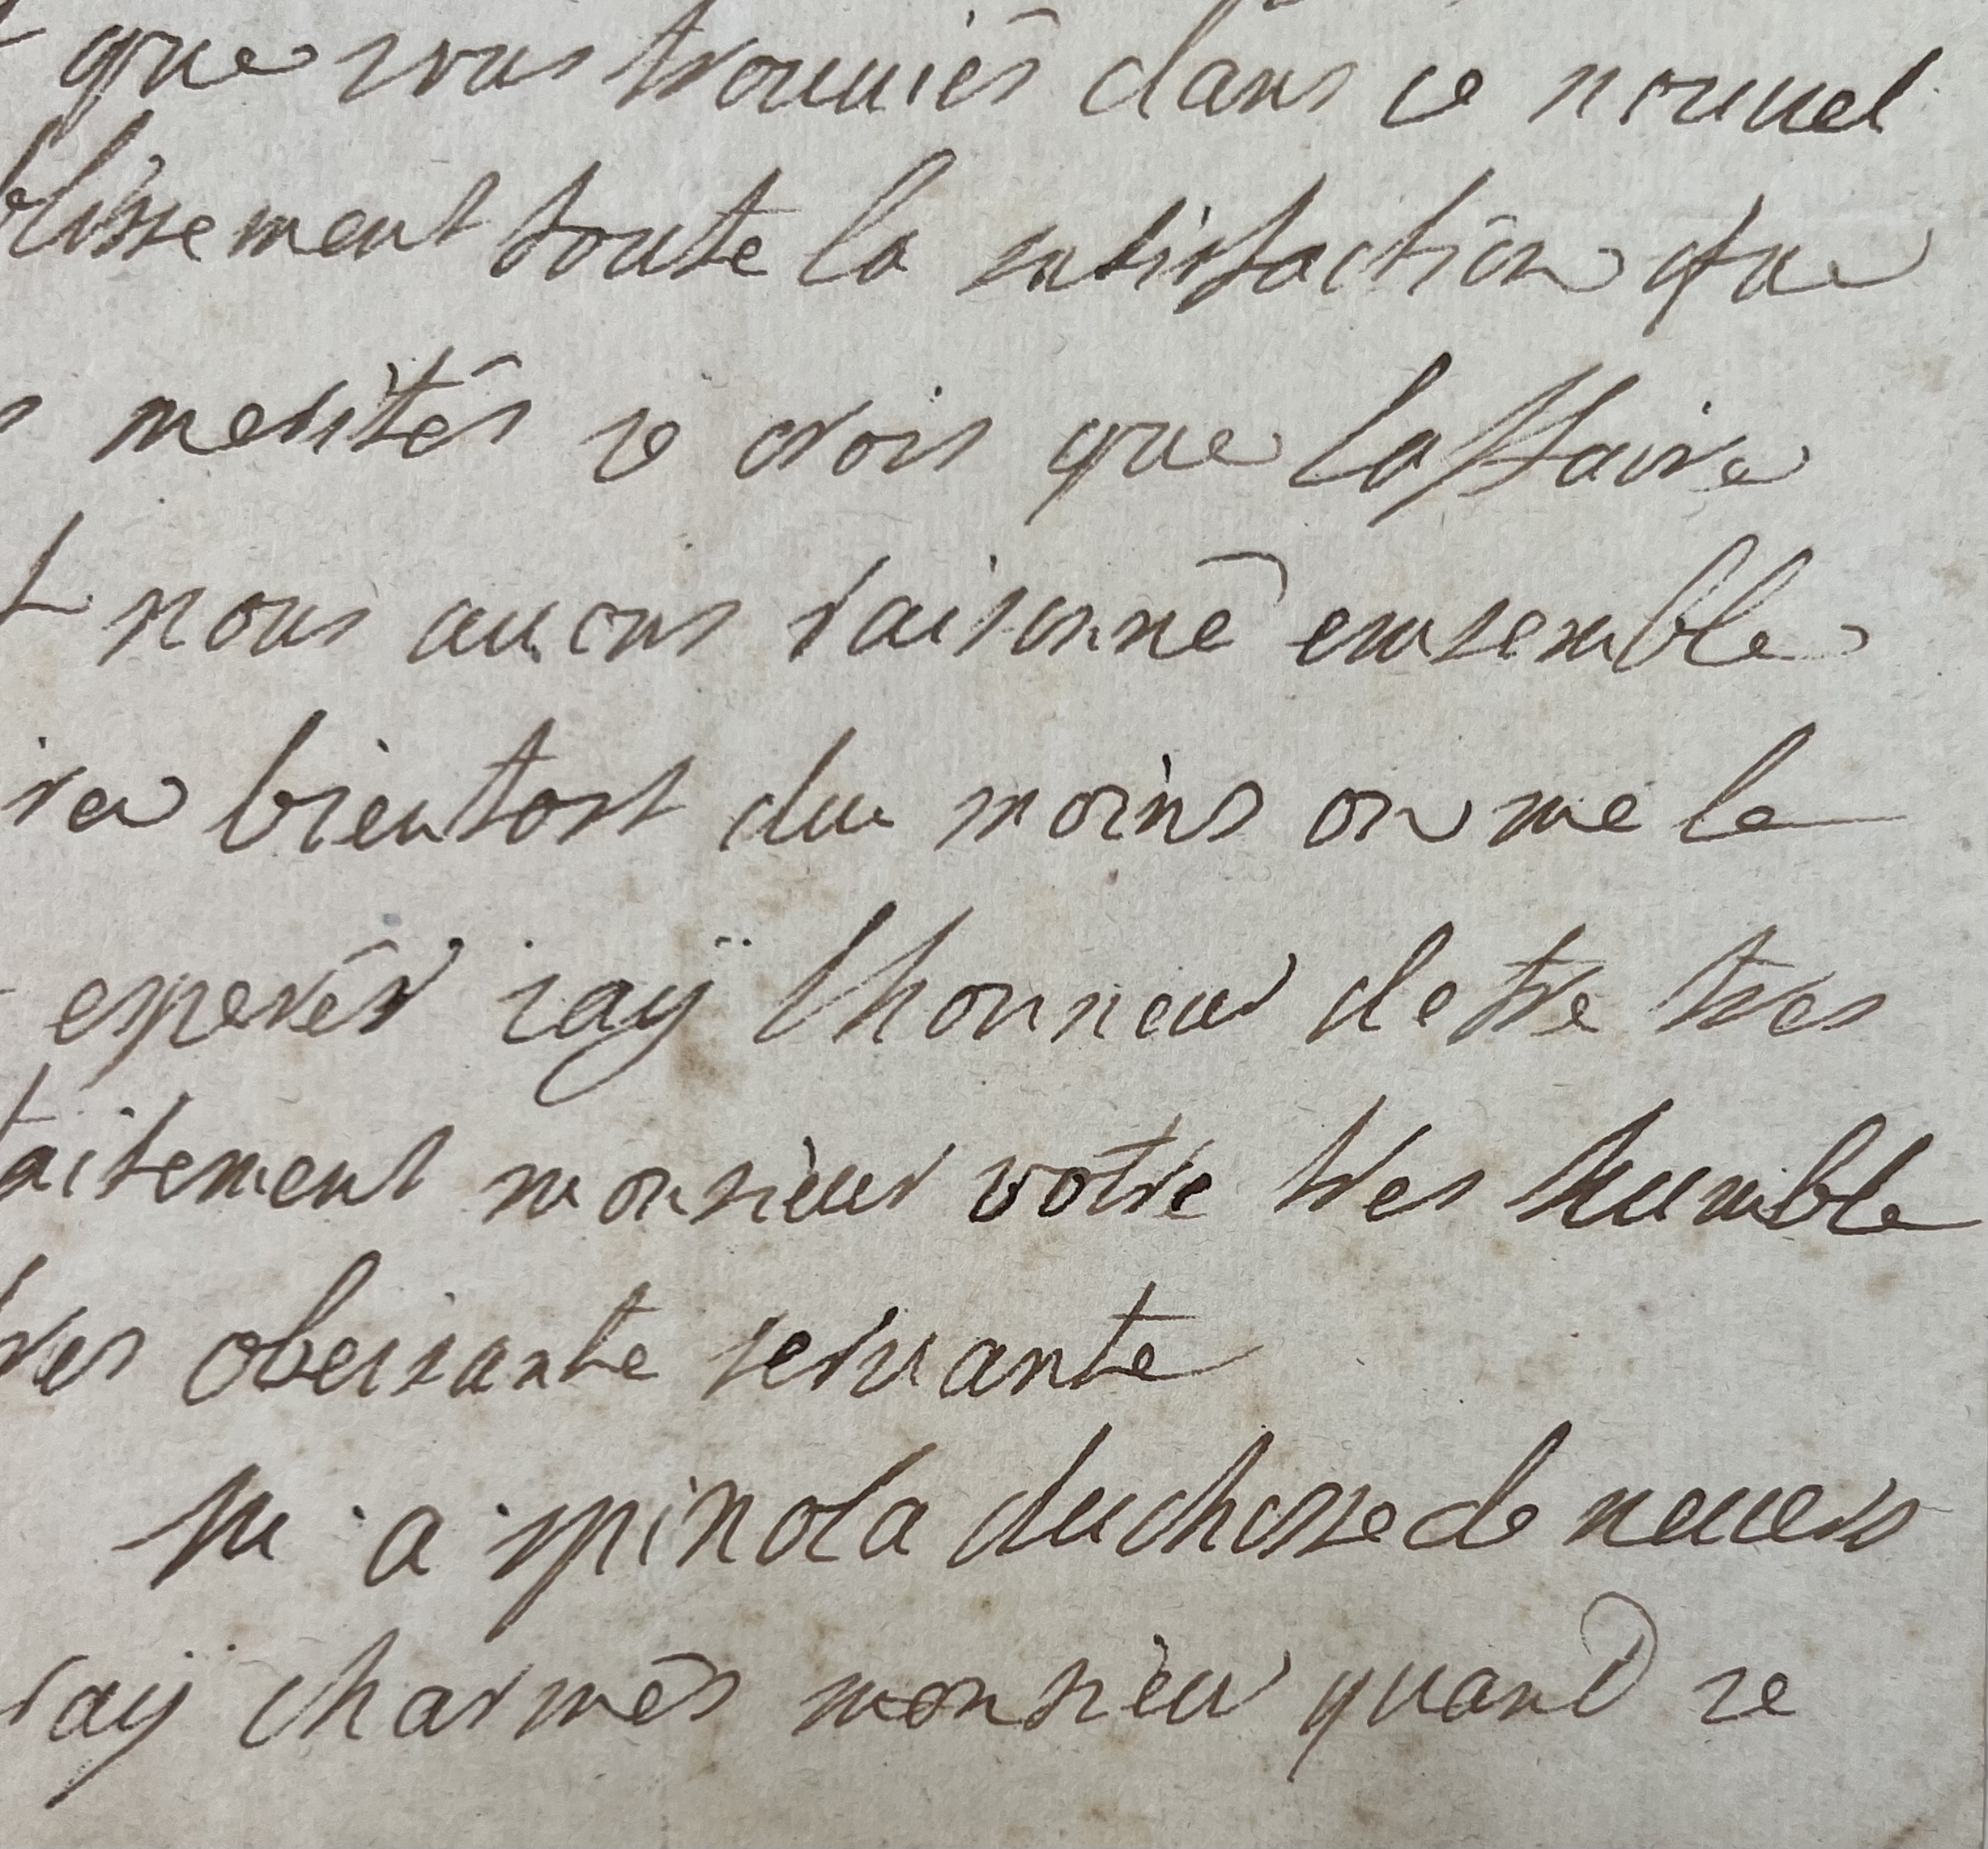 que vous trouuiés dans ce nouuel
blissement toute la satisfaction que
s merités je crois que laffaire
t nous auons raisonné ensemble
ira bientost du moins on me le
esperér jaÿ lhonneur detre tres
faitement monsieur votre tres humble
tres obeisante seruante
m · a · spinola duchesse de neuers
raÿ charmés monsieur quand je